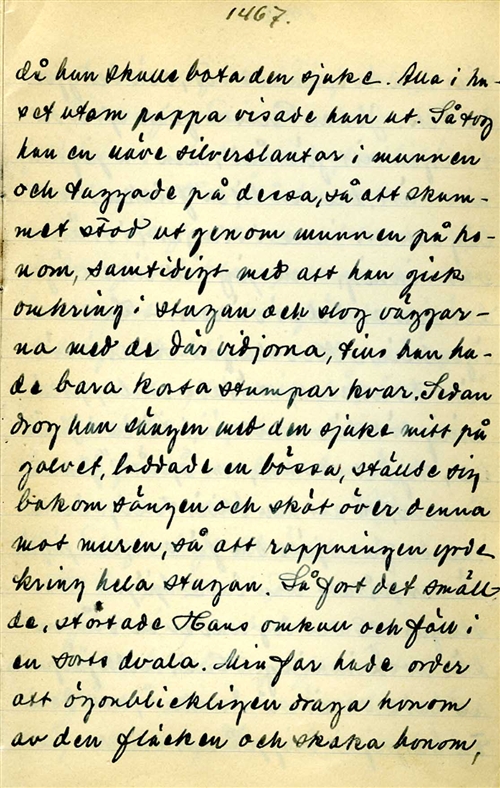 1467.
då han skulle bota den sjuke. Alla i hu-
set utom pappa visade han ut. Så tog
han en näve silverslantar i munnen
och tuggade på dessa, så att skum-
met stod ut genom munnen på ho-
nom, samtidigt med att han gick
omkring i stugan och slog väggar-
na med de där vidjorna, tius han ha-
de bara korta stumpar kvar. Sedan
drog han sängen med den sjuke mitt på
golvet, laddade en bössa, ställde sig
bakom sängen och sköt över denna
mot muren, så att rappningen yrde
kring hela stugan. Så fort det smäll-
de, störtade Hans omkull och föll i
en sorts dvala. Min far hade order
att ögonblickligen draga honom
av den fläcken och skaka honom,